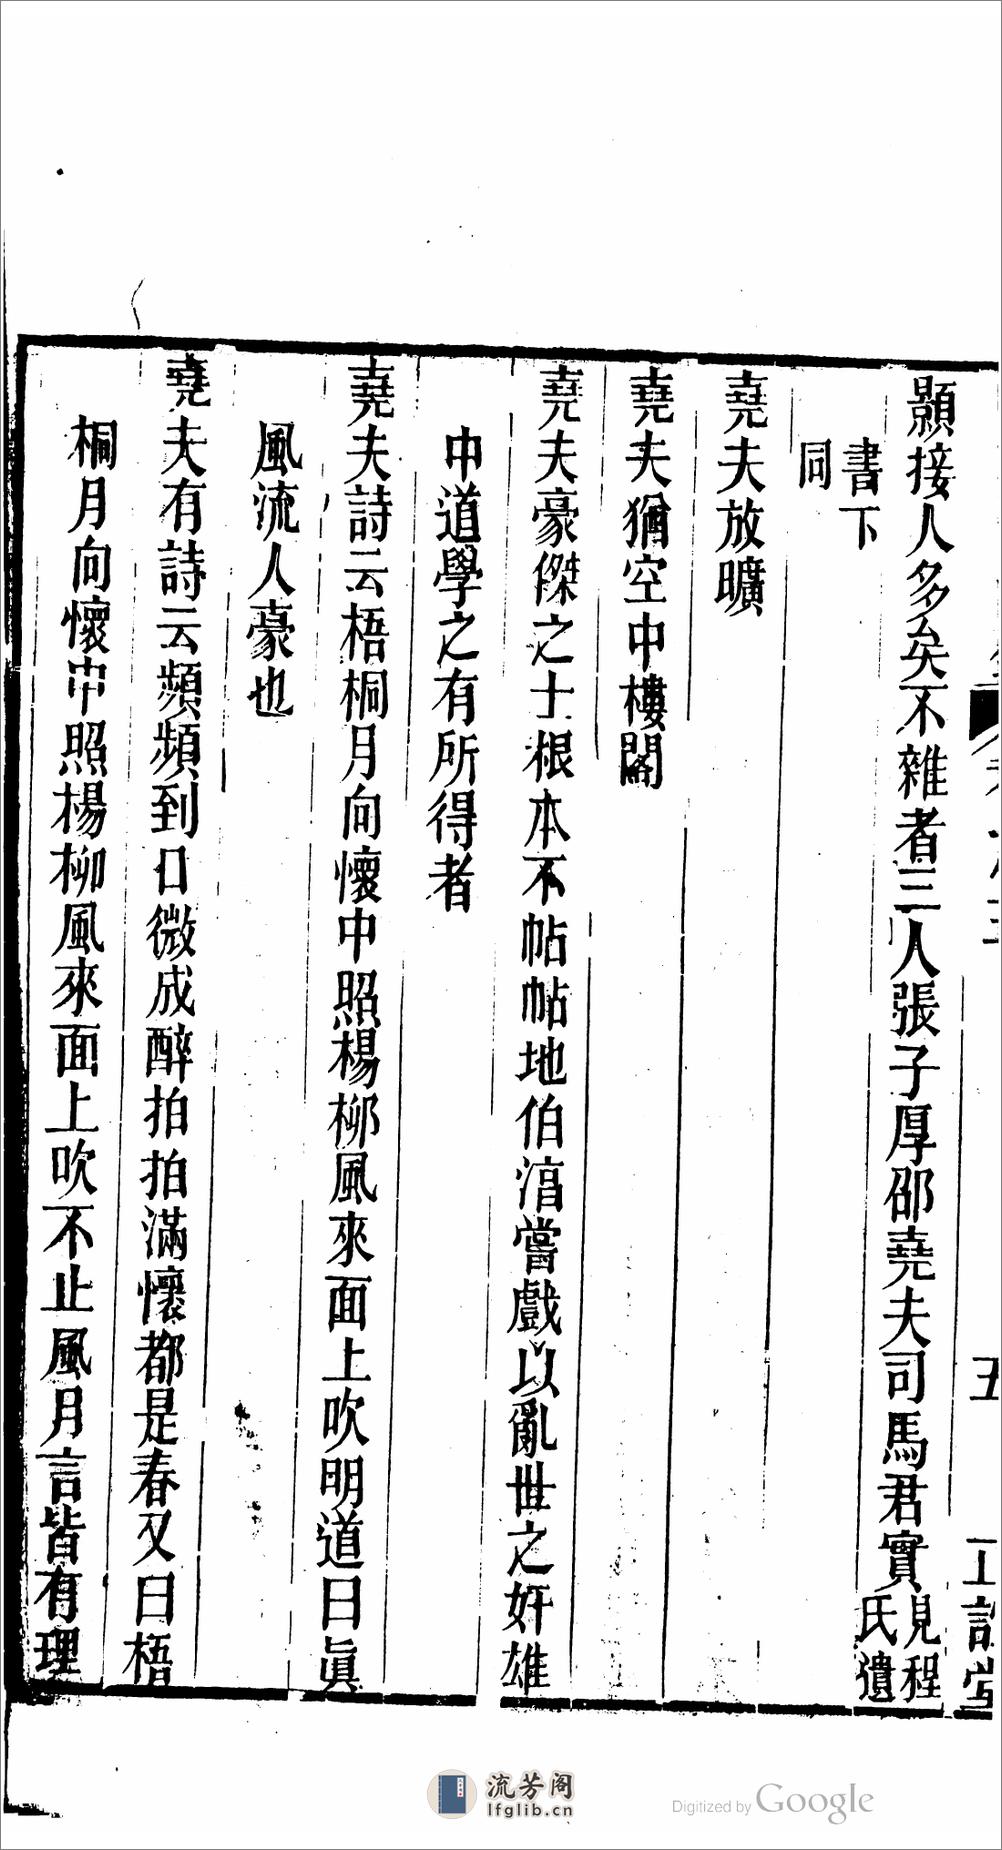 顥接人多矣不雜者三人張子厚邵堯夫司馬君實見程氏遺
書下
同
堯夫放曠
堯夫猶空中樓閣
堯夫豪傑之士根本不帖帖地伯淳嘗戲以亂世之奸雄
中道學之有所得者
堯夫詩云梧桐月向懷中照楊柳風來面上吹明道曰眞
風流人豪也
堯夫有詩云頻頻到口微成醉拍拍滿懷都是春又曰梧
桐月向懷中照楊柳風來面上吹不止風月言皆有理
流芳阁
lfglib.cn
Digitized by Google